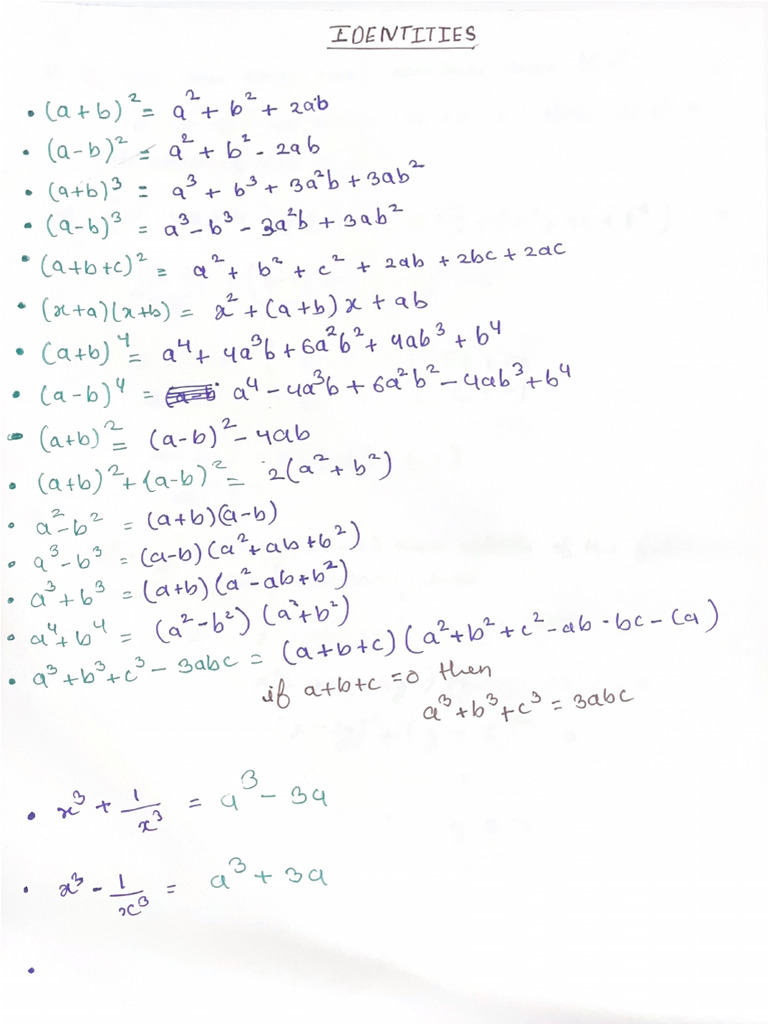 IDENTITIES
• (a+b)² = a² + b² + 2ab
• (a-b)² = a² + b² - 2ab
• (a+b)³ = a³ + b³ + 3a²b + 3ab²
• (a-b)³ = a³ - b³ - 3a²b + 3ab²
• (a+b+c)² = a² + b² + c² + 2ab + 2bc + 2ac
• (x+a)(x+b) = x² + (a+b)x + ab
• (a+b)⁴ = a⁴ + 4a³b + 6a²b² + 4ab³ + b⁴
• (a-b)⁴ = a⁴ - 4a³b + 6a²b² - 4ab³ + b⁴
• (a+b)² = (a-b)² - 4ab
• (a+b)² + (a-b)² = 2(a² + b²)
• a² - b² = (a+b)(a-b)
• a³ - b³ = (a-b)(a² + ab + b²)
• a³ + b³ = (a+b)(a² - ab + b²)
• a⁴ + b⁴ = (a² - b²)(a² + b²)
• a³ + b³ + c³ - 3abc = (a+b+c)(a² + b² + c² - ab - bc - ca)
if a+b+c = 0 then
a³ + b³ + c³ = 3abc
• x³ + 1/x³ = a³ - 3a
• x³ - 1/x³ = a³ + 3a
•